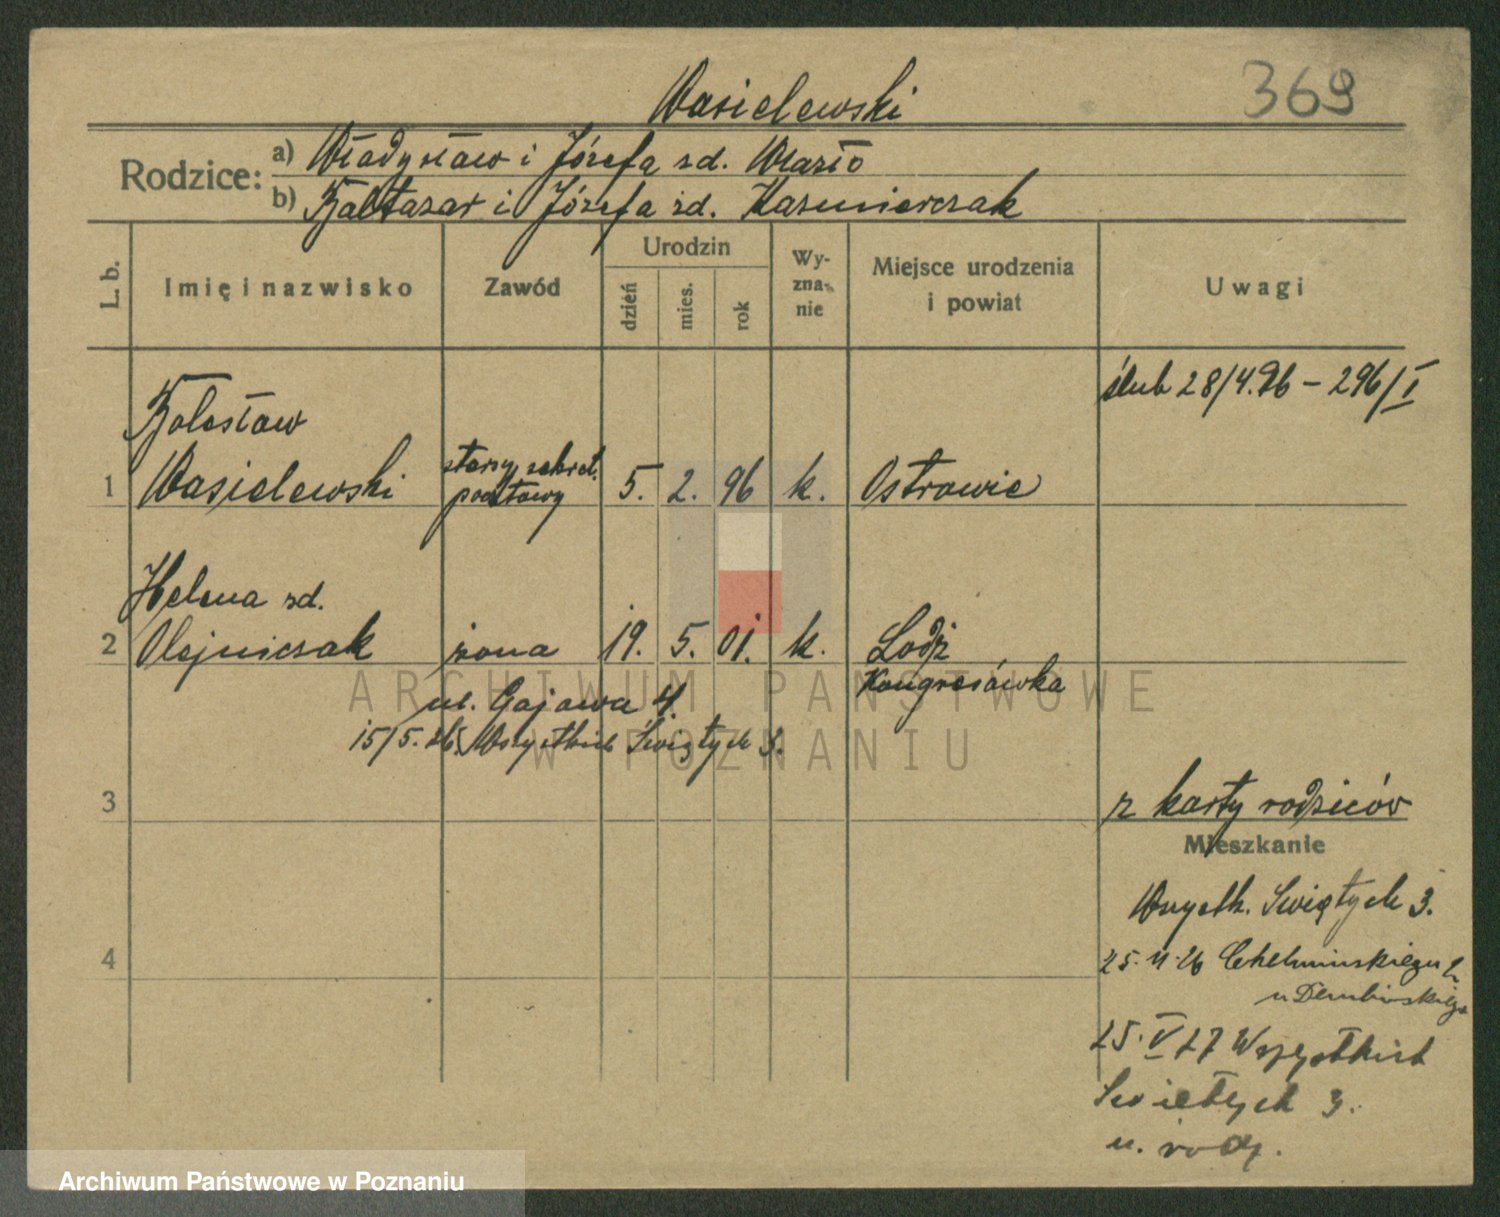 369
Wasielewski
Rodzice: a) Władysław i Józefa zd. Wlazło
b) Baltazar i Józefa zd. Kazmierczak
L. b. Imię i nazwisko Zawód Urodzin dzień mies. rok Wy-zna-nie Miejsce urodzenia i powiat Uwagi
ślub 28/4.26 – 296/I
Bolesław
1 Wasielewski starszy sekret. pocztowy 5. 2. 96 k. Ostrowie
Helena zd.
2 Olejniczak żona 19. 5. 01. k. Lodź
Kongresówka
ul. Gajowa 4.
15/5.26. Wszystkich Świętych 3.
3 z karty rodziców
Mieszkanie
Wszystk. Świętych 3.
4 25. 11. 26 Chełmińskiego 2
u Dembińskiego
25. V 27 Wszystkich
Świętych 3.
u. rodz.
ARCHIWUM PAŃSTWOWE
W POZNANIU
Archiwum Państwowe w Poznaniu